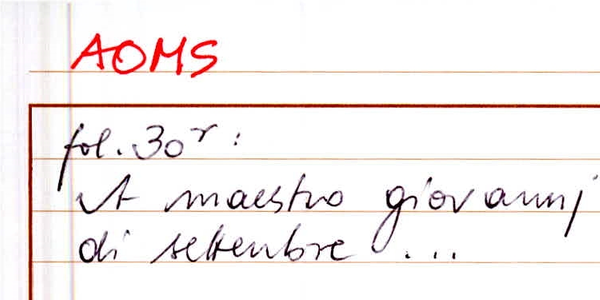 AOMS
fol. 30r:
A maestro giovannj
di settenbre ...